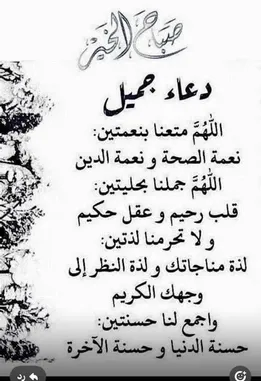 صباح الخير
دعاء جميل
اللهُمَّ متعنا بنعمتين:
نعمة الصحة و نعمة الدين
اللهُمَّ جملنا بحليتين:
قلب رحيم و عقل حكيم
و لا تحرمنا لذتين:
لذة مناجاتك و لذة النظر إلى
وجهك الكريم
واجمع لنا حسنتين:
حسنة الدنيا و حسنة الآخرة
رد